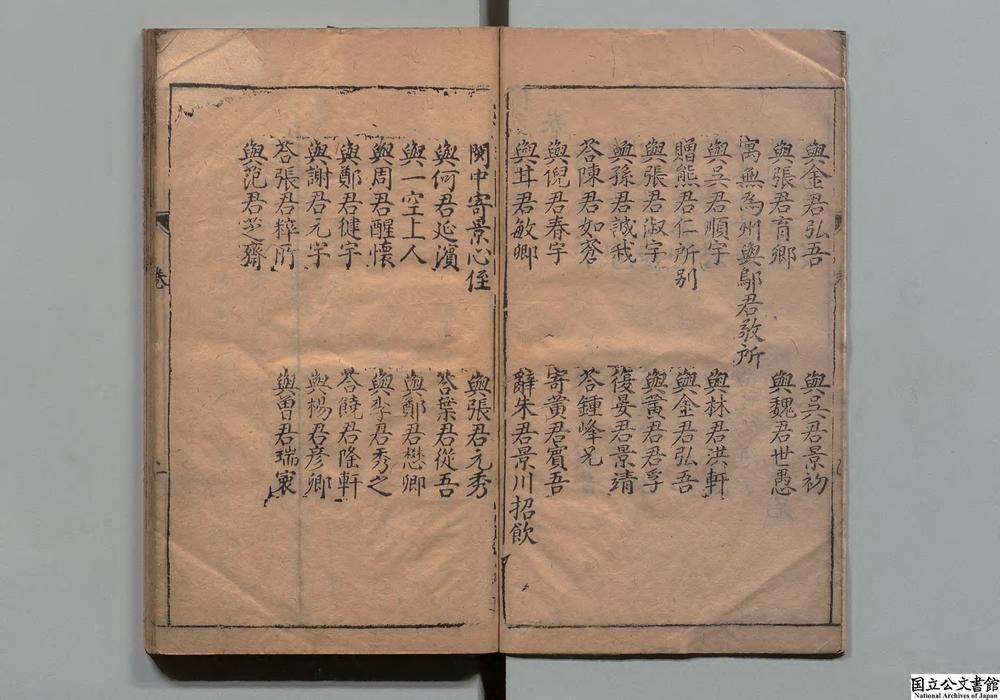 與金君弘吾
與吳君景初
與張君育卿
與魏君世愚
寓無為州與鄔君敎所
與吳君順宇
與林君洪軒
贈熊君仁所別
與金君弘吾
與張君淑宇
與黃君君孚
與孫君誠我
復晏君景靖
荅陳君如蒼
荅鍾峰兄
與倪君春宇
寄黃君賓吾
與茸君敏卿
辭朱君景川招飲
閩中寄景心侄
與張君元秀
與何君延濱
荅葉君從吾
與一空上人
與鄭君懋卿
與周君醒懷
與李君秀之
與鄭君健宇
荅饒君隆軒
與謝君元宇
與楊君彥卿
荅張君粹所
與曾君瑞寰
與范君芝齋
卷
二
国立公文書館
National Archives of Japan